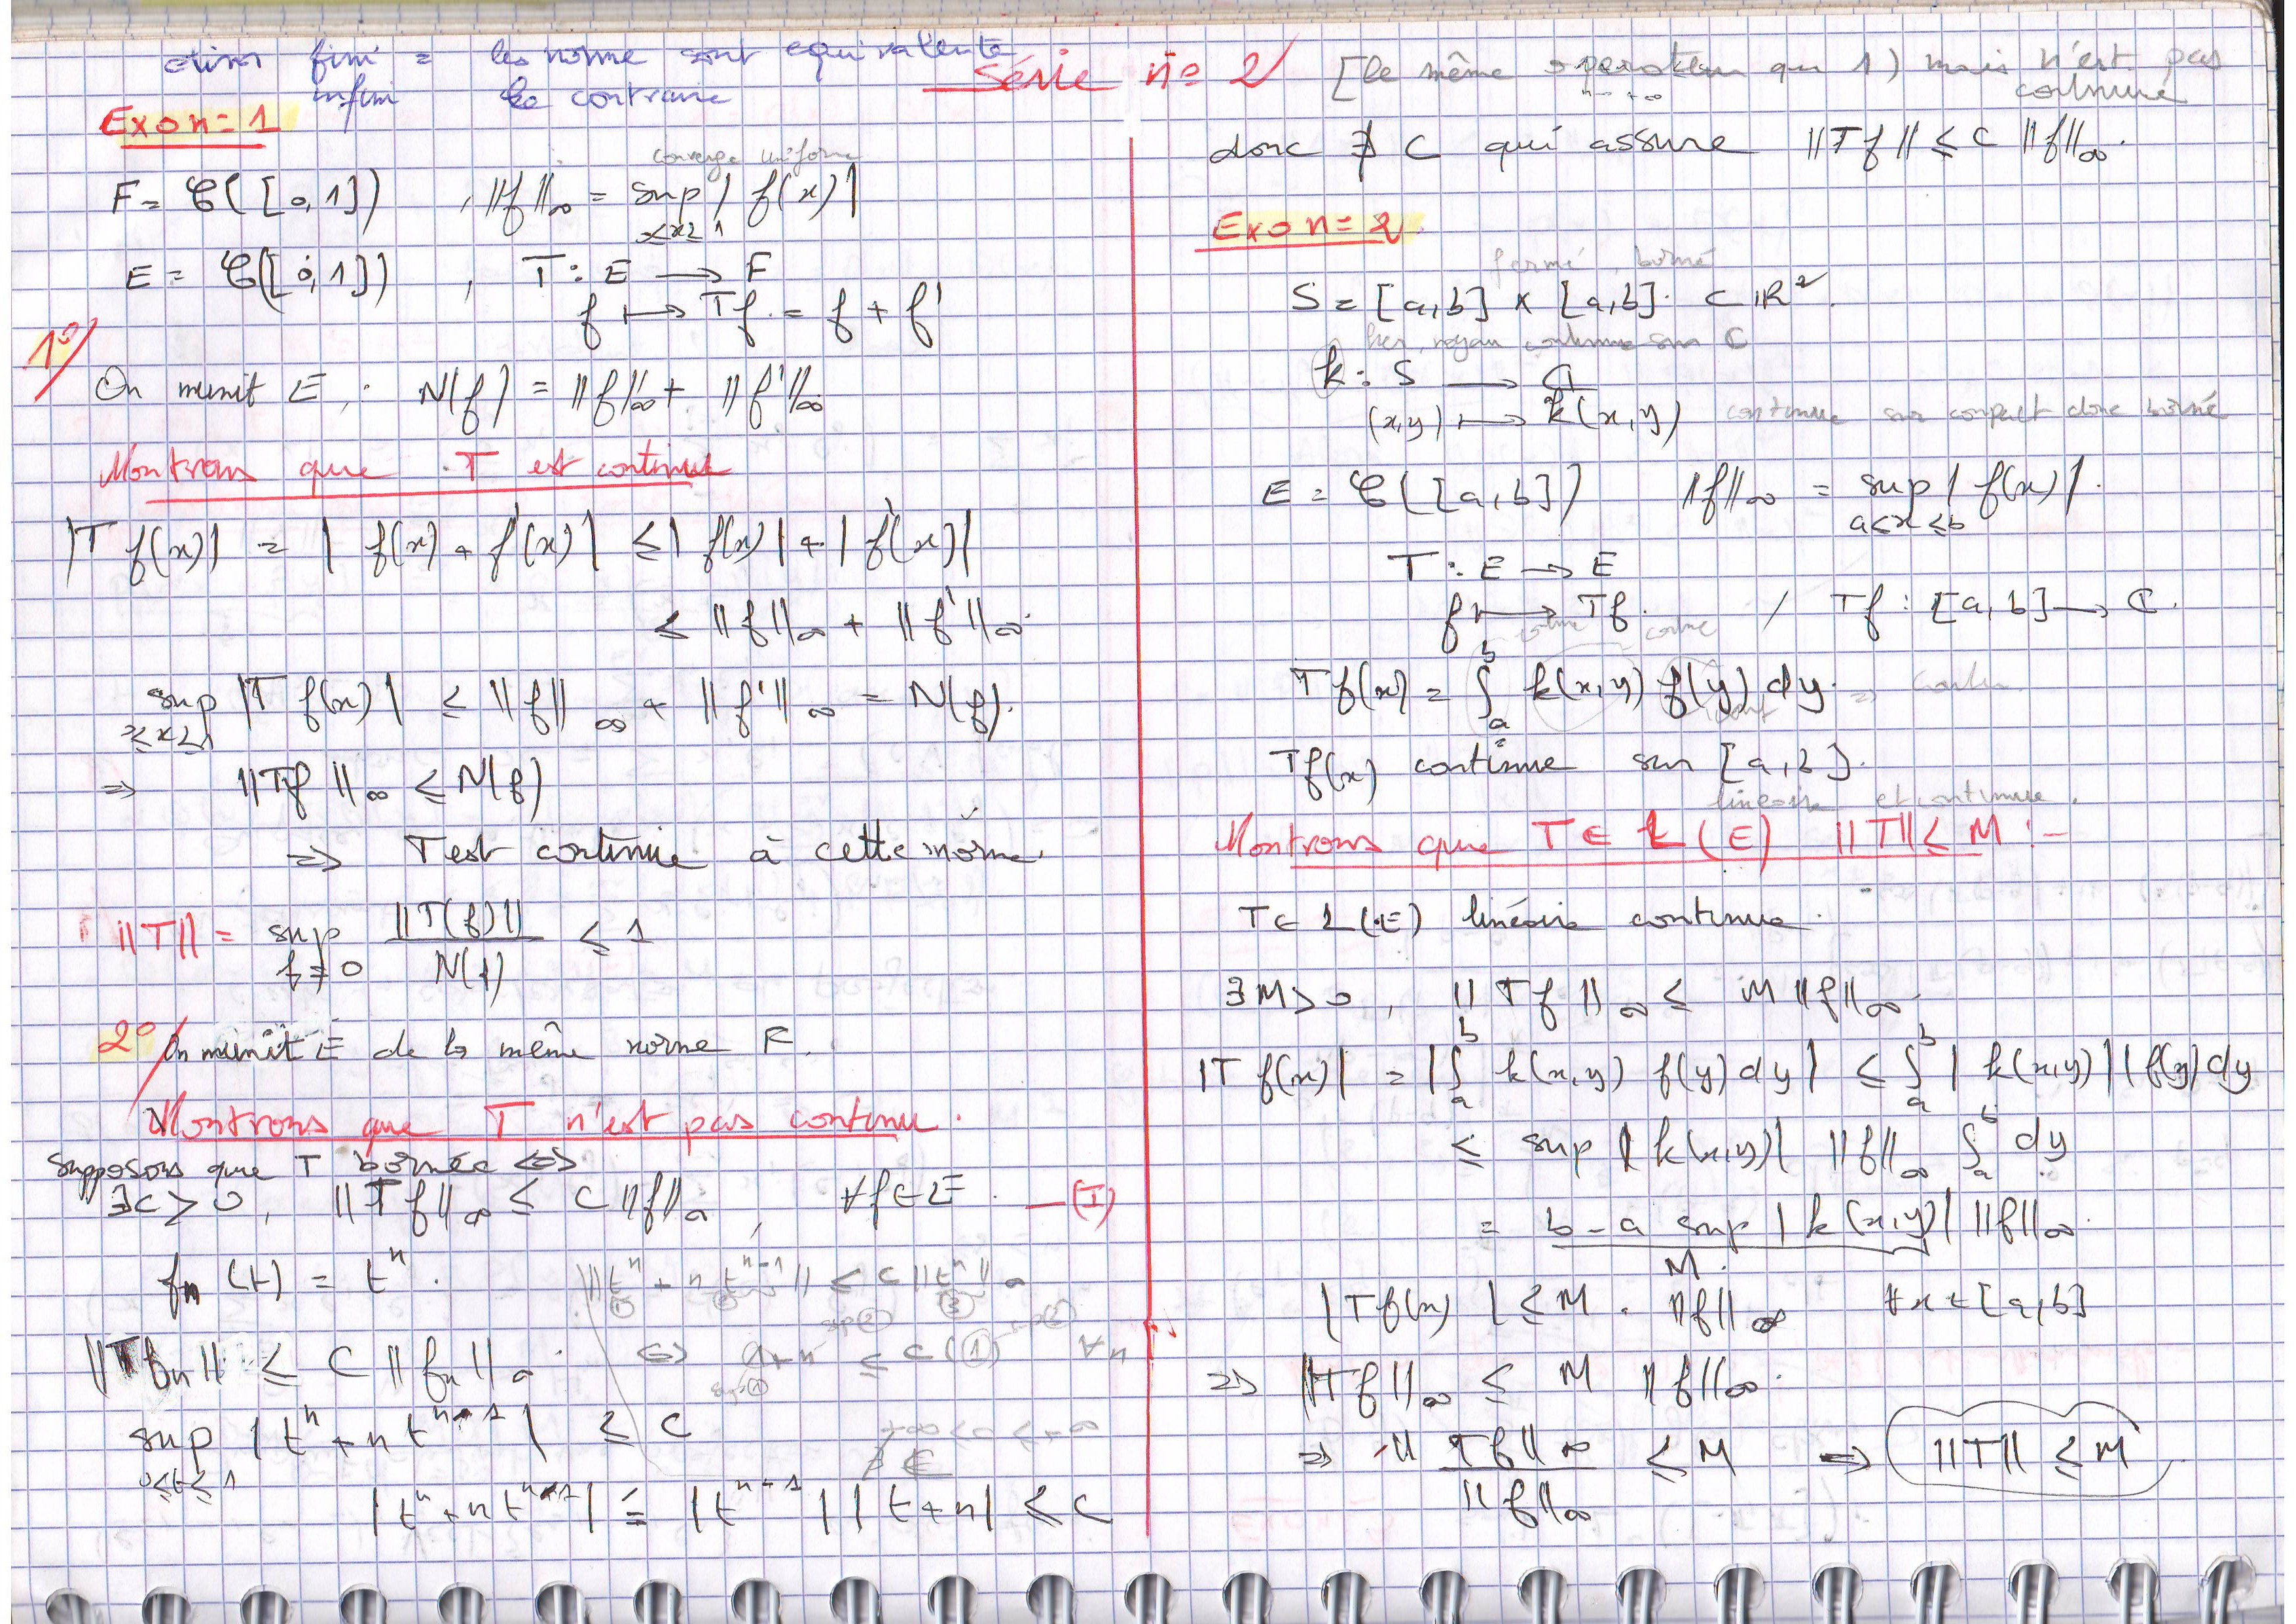 dim fini = les norme sont equivalente
infini le contraire
Série n= 2
Exo n=1
converge uniforme
F = C([0,1]) , ||f||∞ = sup |f(x)|
≤x≤1
E = C([0,1]) , T : E → F
f ↦ Tf = f + f'
1°/
On munit E : N(f) = ||f||∞ + ||f'||∞
Montrons que T est continue
|T f(x)| = |f(x) + f'(x)| ≤ |f(x)| + |f'(x)|
≤ ||f||∞ + ||f'||∞
sup |T f(x)| ≤ ||f||∞ + ||f'||∞ = N(f).
≤x≤1
⇒ ||Tf||∞ ≤ N(f)
⇒ T est continue à cette norme.
||T|| = sup ||T(f)|| / N(f) ≤ 1
f≠0
2°/ On munit E de la même norme F.
Montrons que T n'est pas continu.
Supposons que T bornée ⇔
∃C > 0, ||Tf||∞ ≤ C ||f||∞, ∀f∈E. —(I)
fn(t) = t^n. ||t^n + n t^(n-1)|| ≤ C ||t^n||∞
||Tfn|| ≤ C ||fn||∞ ⇔ 1+n ≤ C (1) ∀n
sup |t^n + n t^(n-1)| ≤ C
0≤t≤1
|t^n + n t^(n-1)| = |t^(n-1)| |t+n| ≤ C
[le même operateur que 1) mais n'est pas
continue
donc ∄ C qui assure ||Tf|| ≤ C ||f||∞.
Exo n=2
fermé, borné
S = [a,b] × [a,b] ⊂ IR².
noyau continue sur C
k : S → C
(x,y) ↦ k(x,y) continue sur compact donc borné
E = C([a,b]) ||f||∞ = sup |f(x)|.
a≤x≤b
T : E → E
f ↦ Tf. / Tf : [a,b] → C.
Tf(x) = ∫_a^b k(x,y) f(y) dy.
Tf(x) continue sur [a,b].
linéaire et continue.
Montrons que T ∈ L(E) ||T|| ≤ M :-
T ∈ L(E) linéaire continue.
∃M > 0, ||Tf||∞ ≤ M ||f||∞.
|T f(x)| = |∫_a^b k(x,y) f(y) dy| ≤ ∫_a^b |k(x,y)| |f(y) dy
≤ sup |k(x,y)| ||f||∞ ∫_a^b dy
= b-a sup |k(x,y)| ||f||∞.
M.
|Tf(x)| ≤ M . ||f||∞ ∀x∈[a,b]
⇒ ||Tf||∞ ≤ M ||f||∞.
⇒ ||Tf||∞ / ||f||∞ ≤ M ⇒ ||T|| ≤ M